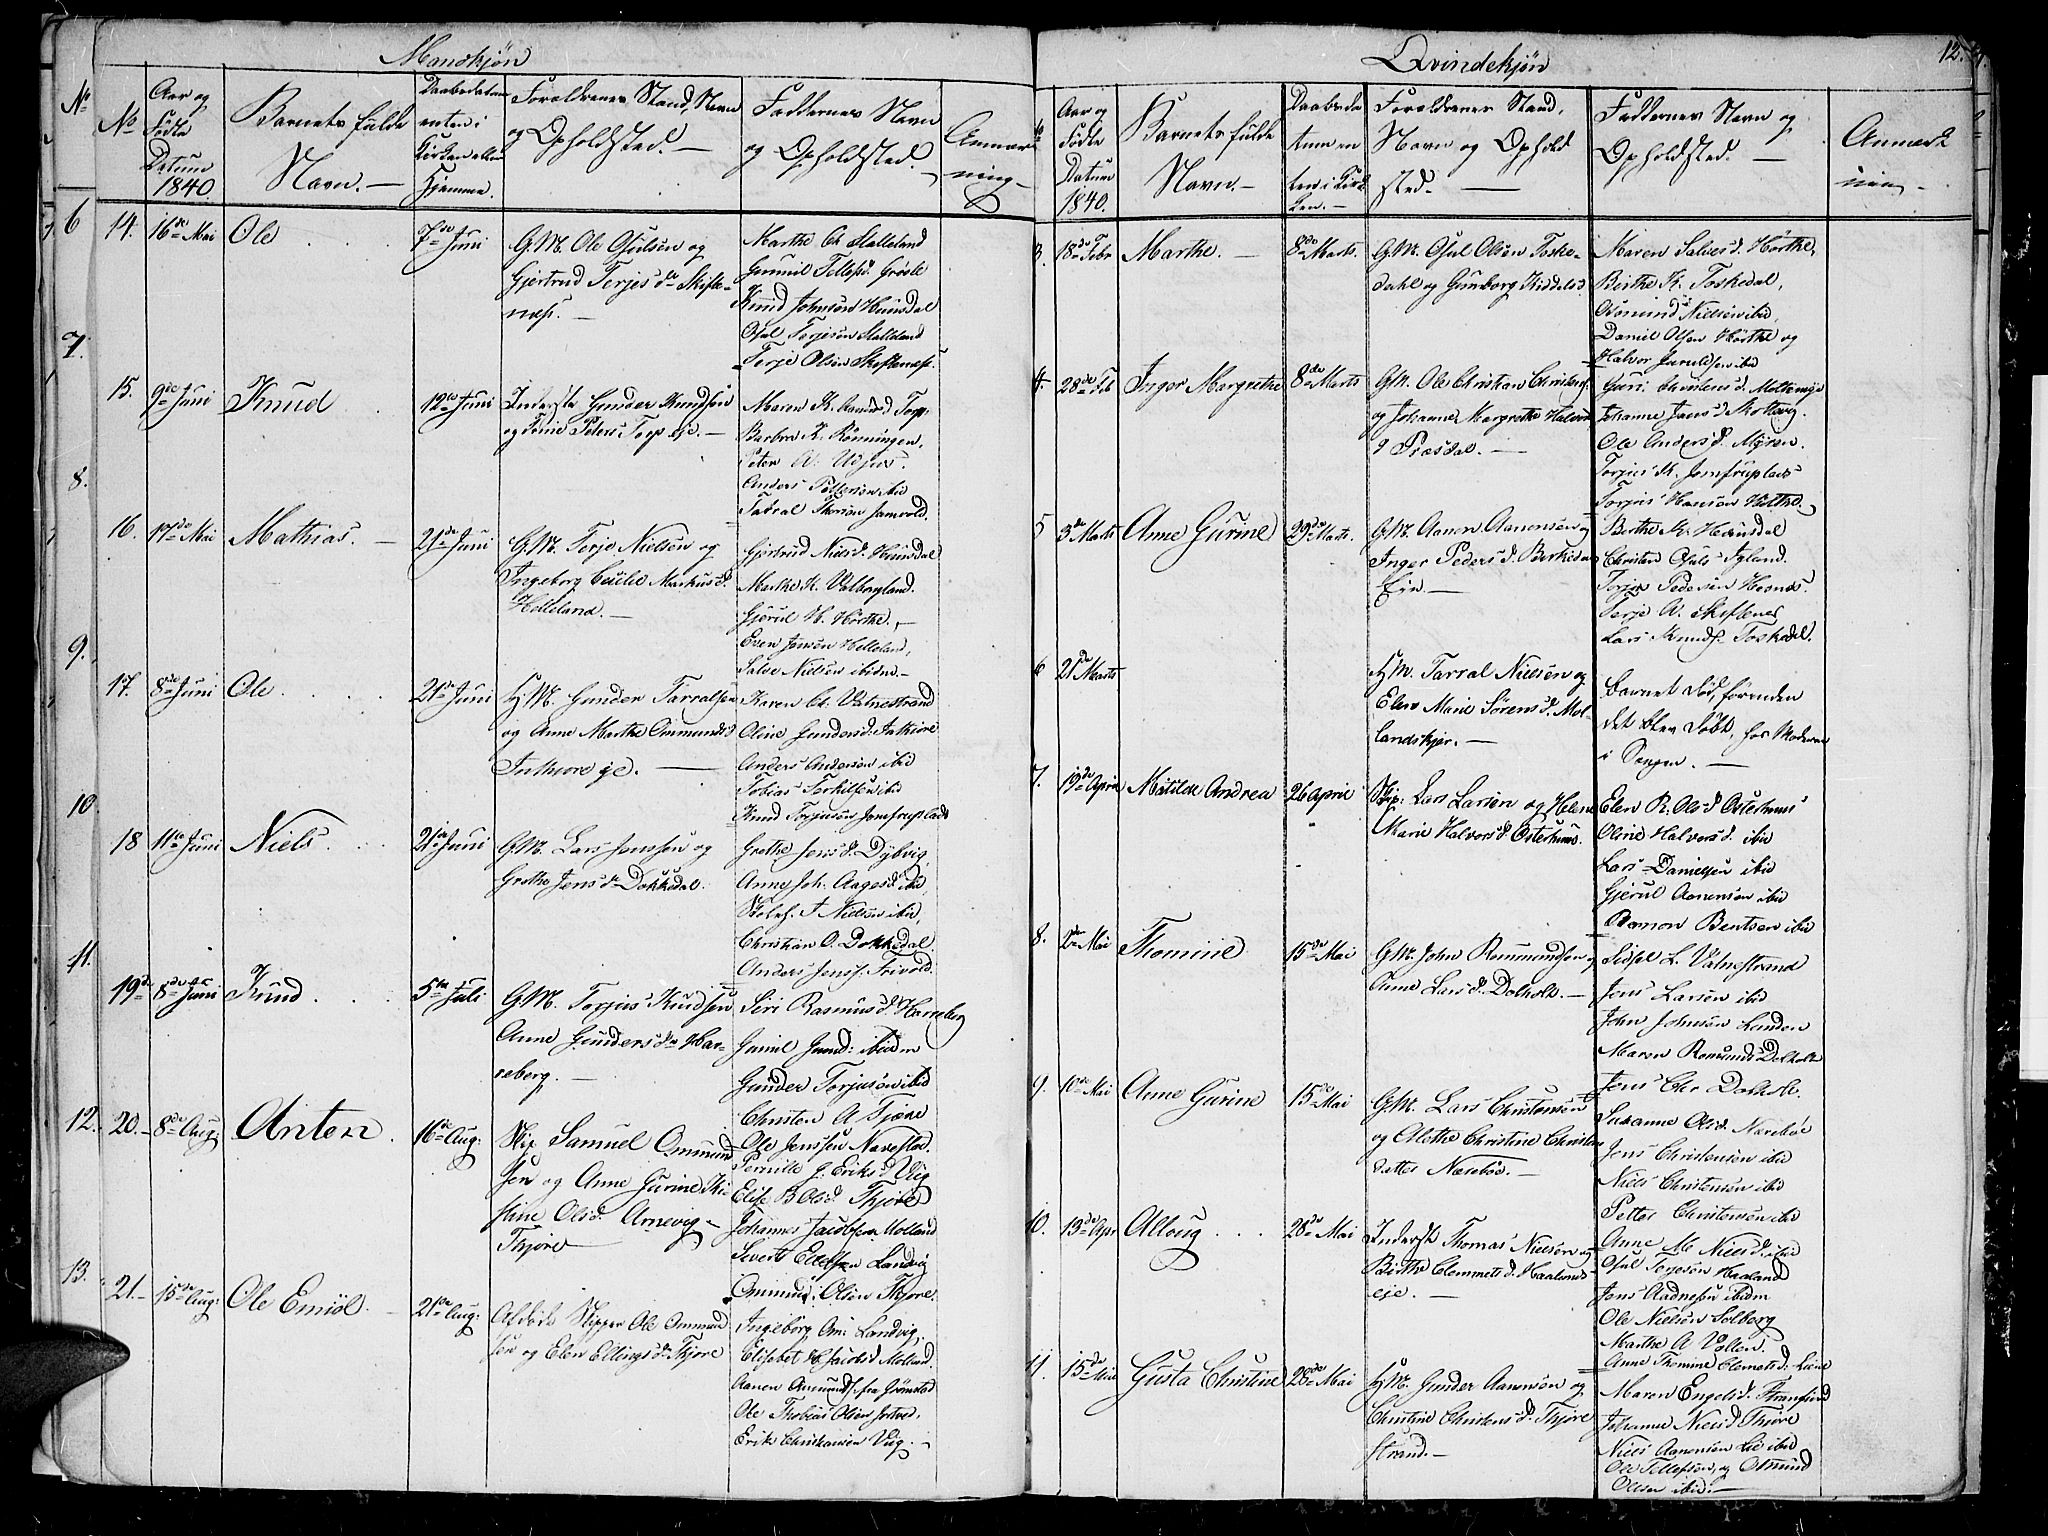 Mandkjøn
No
No
Aar og
Födte
Datum
1840.
Barnets fulde
Navn. —
Daabsdatum
enten i
Kirken eller
Hjemme.
Forældrenes Stand, Navn
og Opholdssted. —
Faddernes Navn
og Opholdsted. —
Anmærk
ning —
6
7.
8.
9.
10
11.
12.
13.
14. 16de Mai
Ole
7de Juni
G.M. Ole Gjulsen og
Gjertrud Terjesdr Skifte-
næs. —
Marthe Ch. Stalleland
Gunnil Tellefsd. Grösle
Knud Johnsen Hunsdal
Osul Terjesen Stalleland
Terje Olsen Skiftenæs.
15. 9de Juni
Knud
12te Juni
Inderste Gunder Knudsen
og Tonie Peters Torp eje. —
Maren K. Aanonsd Torp.
Barbro K. Rönningen.
Peter A. Udjus.
Anders Pettersen ibid
Taral Thorsen Jomvold.
16. 17de Mai
Mathias. —
21de Juni
G.M. Terje Nielsen og
Ingeborg Cecilie Markusd.
Helleland. —
Gjertrud Nielsd. Hunsdal
Marthe K. Valborgland.
Gjerul H. Hörthe. —
Even Jensen Helleland,
Salve Nielsen ibidm. —
17. 8de Juni
Ole
21de Juni
H.M. Gunder Tarralsen
og Anne Marthe Ommundsd
Inthiore eje. —
Karen Ch. Vatnestrand
Oline Gundersd. Inthiore
Anders Andersen ibid
Tobias Terkilsen ibid
Knud Terjesen Jomfruplads
18 11te Juni
Niels.
21de Juni
G.M. Lars Jenssen og
Grethe Jensdr Dokkedal.
Grethe Jensd. Dybvig
Anne Joh. Aagesd ibid,
Nielsen ibid,
Christian O. Dokkedal
Anders Jenss. Frivold.
19de 8de Juni
Knud
5te Juli
G.M. Terjus Knudsen
Anne Gundersdr Har-
reberg. —
Siri Rasmusd. Harreberg
Gunnil Gund: ibidem
Gunder Terjusen ibid
Christen A. Tjøre
Ole Jenssen Navestad.
20. 8de Aug
Anton
16de Aug:
Skip Samuel Ommund
sen og Anne Gurine Kri
stine Olsd. Arnevig —
Thjöre
Pernille G. Eriksd. Vig
Elise B. Olsd. Thjöre
Johannes Jacobsen Molland
Severt Ellefsen Landvig
Ommund Olsen Thjöre.
21. 15de Aug:
Ole Emiöl. —
21de Aug:
Afdöde Skipper Ole Ommund
sen og Elen Ellingsdr Thjöre
Ingeborg Om: Landvig,
Elisabet Jacobsd Molland.
Aanen Ommunds. fra Grømstad
Ole Thobias Olsen
Erik Christiansen Viig. —
12.
Qvindekjön
Aar og
Födte
Datum
1840.
Barnets fulde
Navn. —
Daabsda
tum en
ten i Kir
ken. —
Forældrenes Stand,
Navn og Ophold
sted. —
Faddernes Navn og
Opholdsted. —
Anmærk
ning —
3. 18de Febr
Marthe. —
8de Marts.
G.M. Osul Olsen Toske-
dahl og Gunborg Kiddelsd.
Maren Salvesd. Hörthe,
Berthe K. Toskedal,
Osmund Nielsen ibid,
Daniel Olsen Hörthe og
Halvor Jeruldsen ibid
4. 28de Feb
Inger Margrethe
8de Marts
G.M. Ole Christian Christens.
og Johanne Margrethe Halvors
d Præsdal. —
Guri Christensd. Moltemyr
Johanne Jansd Skottevig.
Ole Andersd. Myren.
Terjus K. Jomfruplads
Terjus Hansen Hörthe. —
5 3de Marts
Anne Gurine
29de Marts.
G.M. Aanen Aanensen og
Inger Pedersd. Berkedal
Eie. —
Berthe K. Hunsdal
Christen Osuls Igland.
Terje Pedersen Hesnes.
Terje A. Skiftenes
Lars Knuds. Toskedal.
6 21de Marts
H.M. Tarral Nielsen og
Elen Marie Sörensd. Mol-
landskjer. —
Barnet död, förenden
det blev döbt, hos Moderen
i Sengen. —
7. 19de April
Matilde Andrea
26 April
Skip: Lars Larsen og Helene
Marie Halvorsd. Osterhuus.
Elen R. Olsd Osterhuus
Oline Halvorsd. ibid
Lars Danielsen ibid
Gjerul Aanensen ibid
Ramon Bentsen ibid
8. 2den Mai
Thomine
15de Mai
G.M. John Rommundsen og
Anne Larsd. Dolholt. —
Sidsel L. Vatnestrand
Jens Larsen ibid
John Johnsen Landen
Maren Romunds Dolholt
Jens Chr Dolholt.
9. 10de Mai
Anne Gurine
15de Mai
G.M. Lars Christensen
og Alethe Christine Christens
datter Næsböe. —
Susanne Olsd. Næsböe
Jens Christensen ibid
Niels Christensen ibid
Petter Christensen ibid
Anne M. Nielsd. ibid
10. 13de Apr
Allaug
28de Mai
Inderst Thomas Nielsen og
Birthe Clemmetsd. Haaland
eje. —
Osul Terjesen Haaland
Jens Aadnesen ibidm
Ole Nielsen Solberg
Marthe A. Vollen.
Anne Thomine Clemetsd. Lie
11. 15de Mai
Gusta Christine
28de Mai
H.M. Gunder Aanensen og
Christine Christensd. Thjöre
strand. —
Maren Engelsd. Strømsund
Johanne Nielsd Thjöre
Niels Aanensen Lie ibid
Ole Tellefsen, og Osmund
Olsen ibid. —